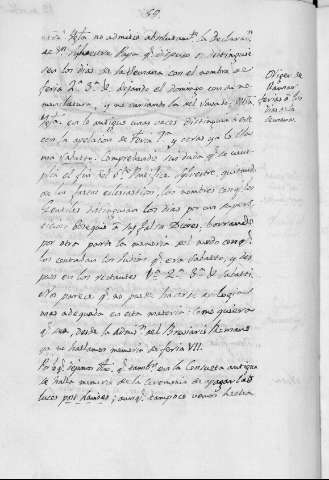 59.
nra Yga. no admira absolutamte. la declaran.
de Sn. Silvestre Papa qe. dispuso se distinguie
sen los dias de la Semana con el nombre de
feria 2ª. 3ª. &. dejando el domingo con su de
nominatura, y no variando la del Savado. Nra
Yga. en lo antiguo unas veces distinguia a este
con la apelacion de feria 7ª y otras ya le lla
ma Sabado. Comprehendo sin duda qe. se cum
plia el fin del Sto. Pontifice Silvestre, quitando
de los fastos eclesiasticos, los nombres con qe. los
Gentiles distinguian los dias por un supers
ticioso obsequio a sus falsos Dioses, borrando
por otra parte la memoria del modo con qe.
los contaban los Judios qe. era Sabado, y des
pues en los restantes 1ª. 2ª. 3ª. de Sabati.
No parece qe. no puede hacerse analogia
mas adequada en esta materia: como quiera
qe. sea, desde la admisn. del Breviario Romano
ya no hallamos memoria de feria VII.
Po qe. tambn. en la Consueta antigua
se halla memoria de la ceremonia de apagar las
luces por laudes; aunqe. tampoco vemos hasta
Origen de
llamar
ferias a los
dias de la
Semana.